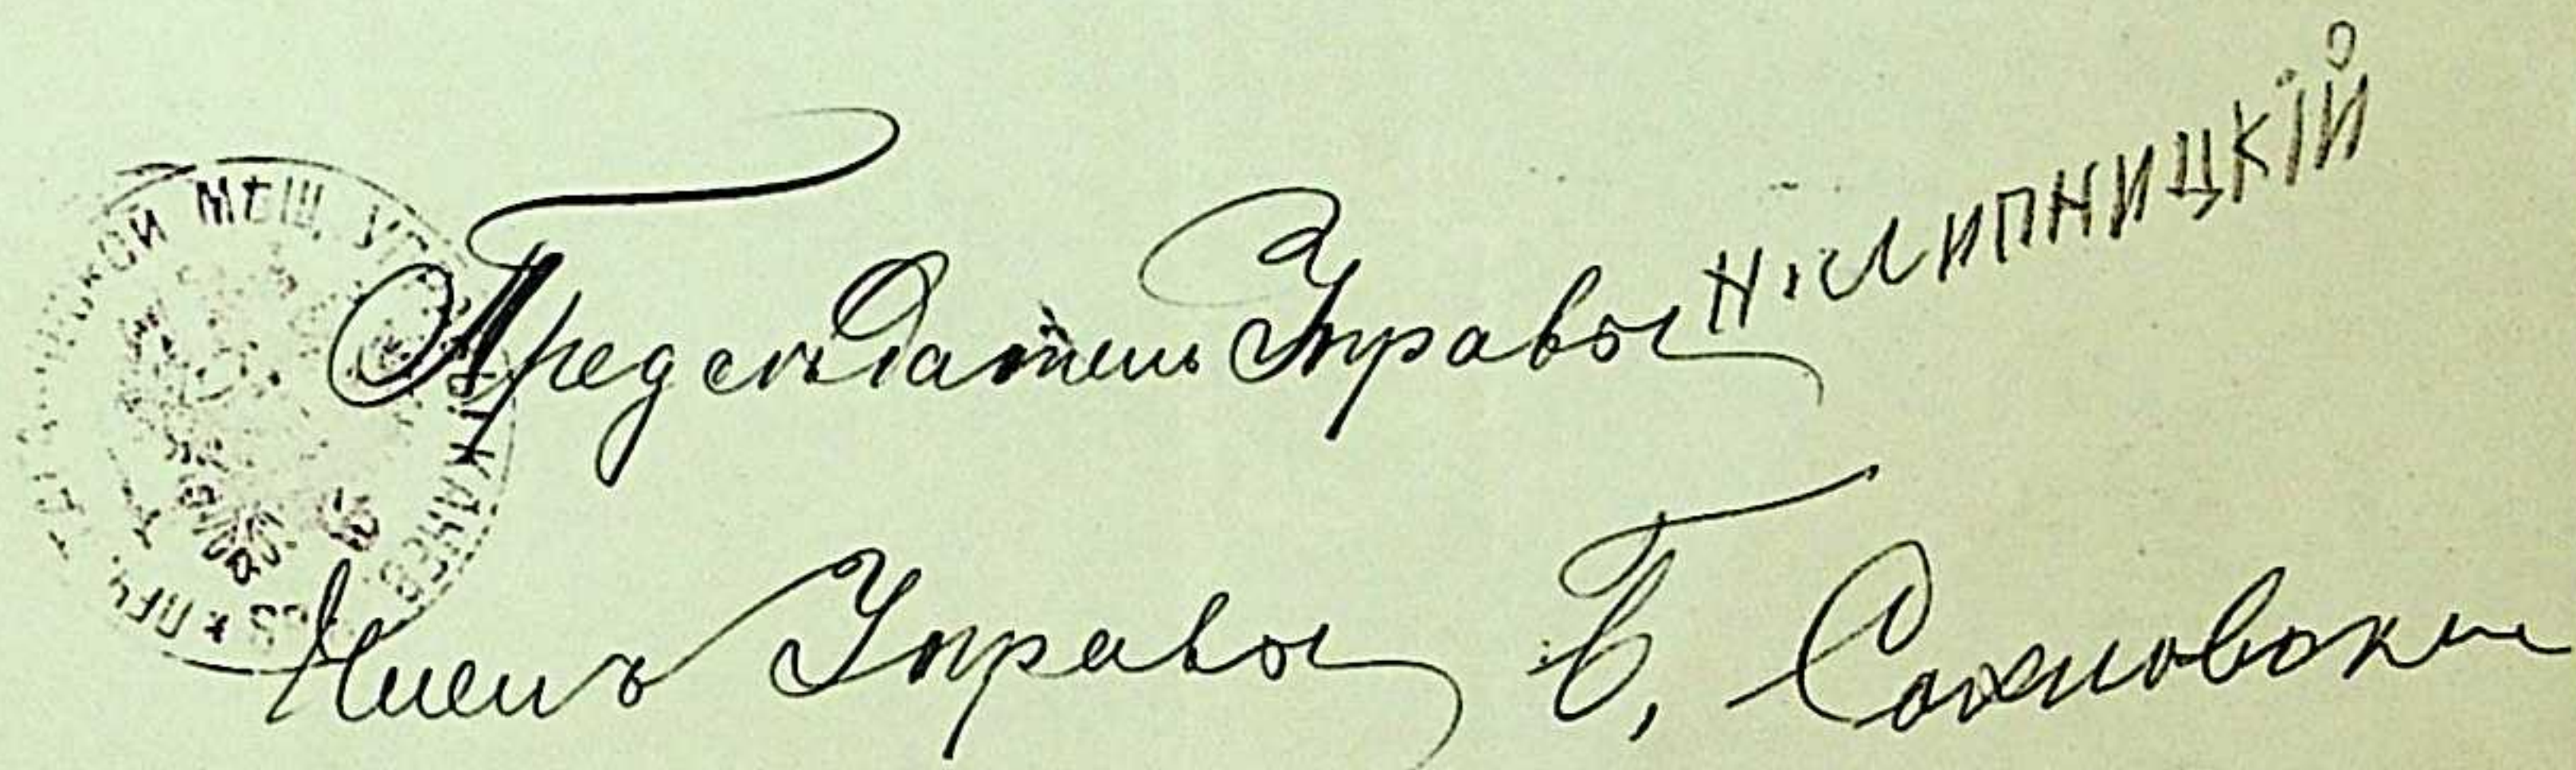 МѢЩ. УПР
Предсѣдатель Управы Н. Липницкій
Членъ Управы Б. Сохновски